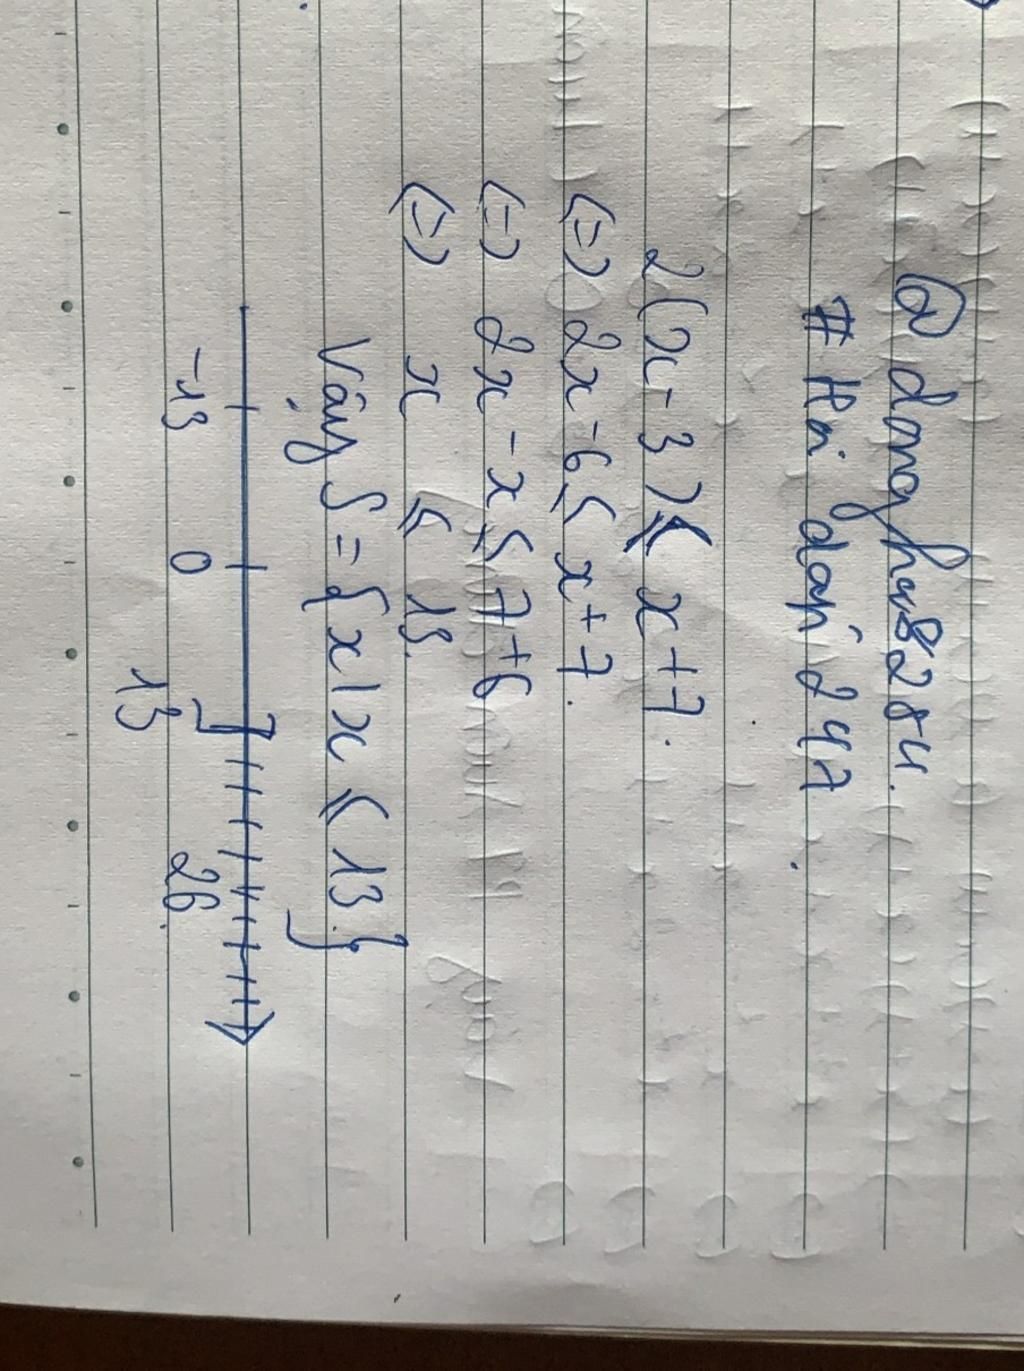 @donghs8284.
# Hỏi đáp 247
2(x-3) ≤ x+7.
(=) 2x-6 ≤ x+7.
(=) 2x-x ≤ 7+6
(=) x ≤ 13.
Vậy S={x|x ≤ 13}
-13 0 13 26